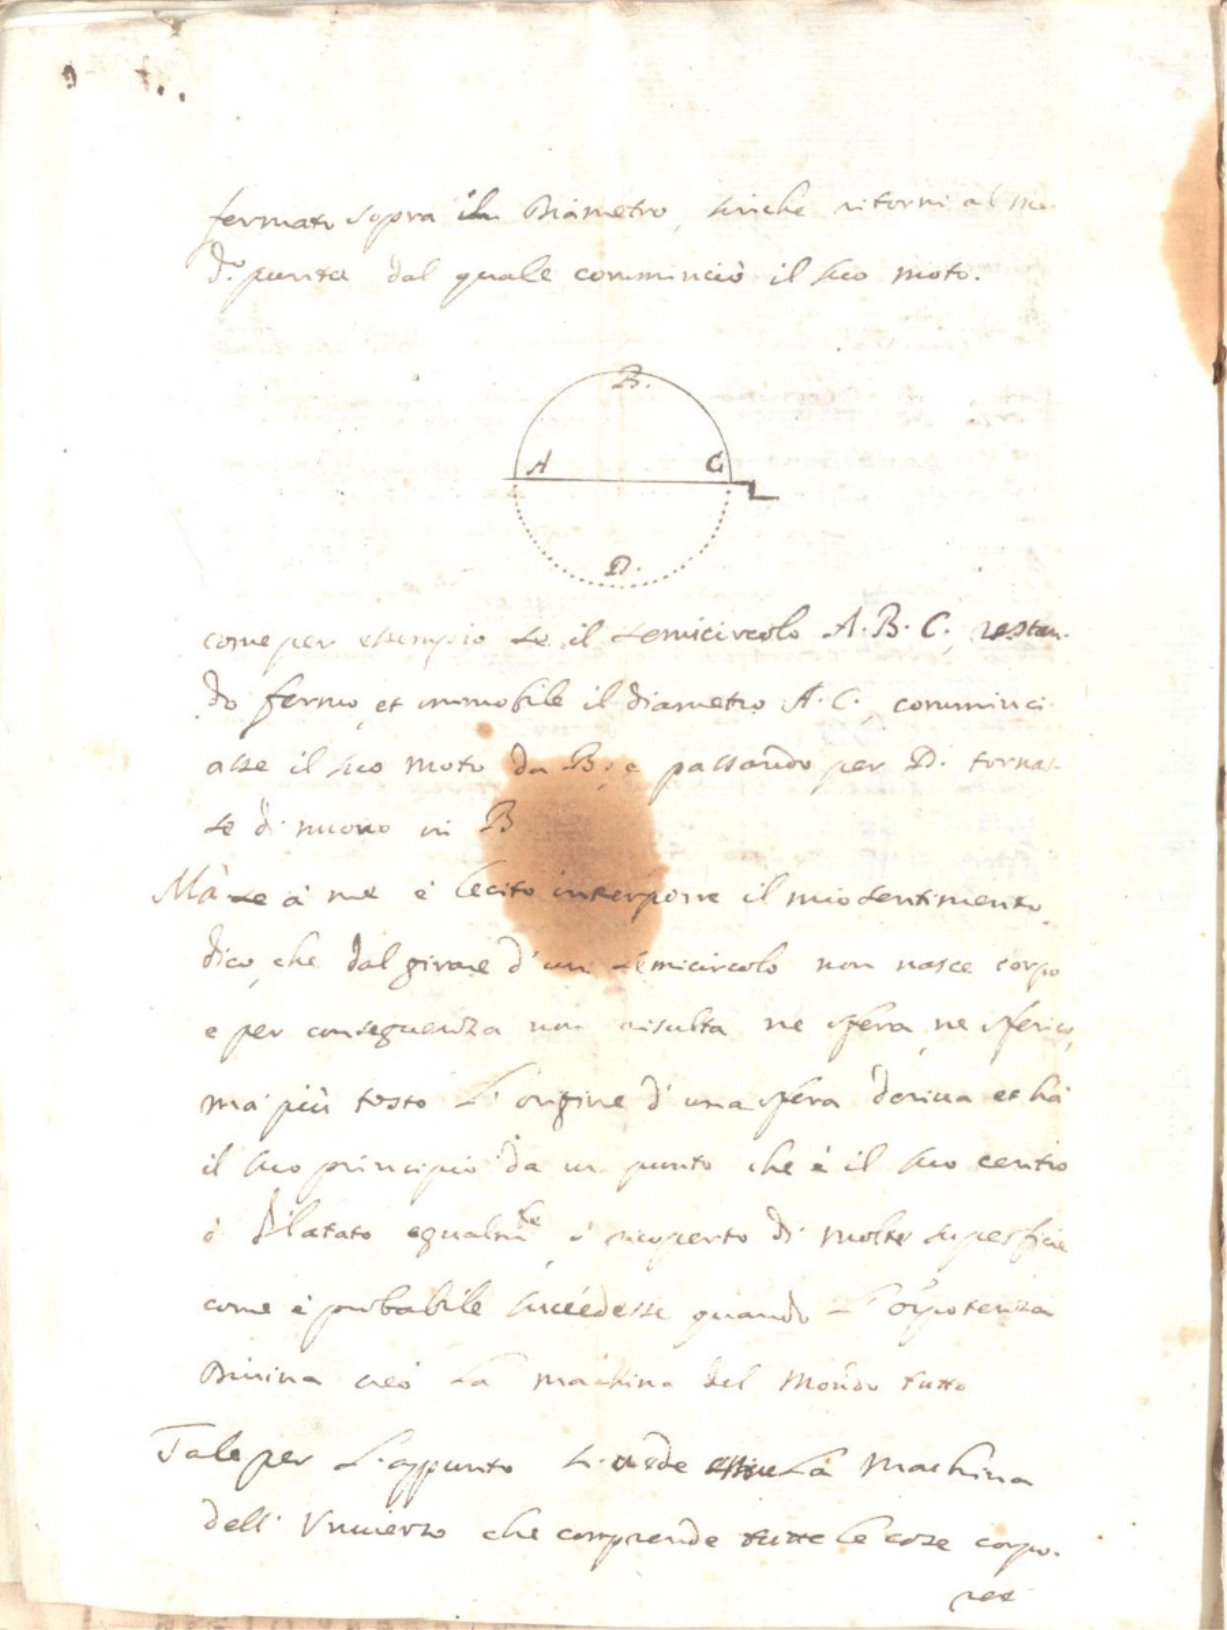 fermato sopra il Diametro, sinche ritorni al me
d.º punto dal quale comminciò il suo moto.
B.
A C
D.
come per essempio se il semicircolo A. B. C., restan-
do fermo, et immobile il diametro A. C., comminci
asse il suo moto da B. e passando per D. tornas-
se di nuovo in B
Mà se à me è lecito interporre il mio sentimento
dico, che dal girare d'un semicircolo non nasce corpo
e per conseguenza non risulta ne sfera, ne sferico,
ma più tosto l'origine d'una sfera deriva et hà
il suo principio da un punto che è il suo centro
ò dilatato egualm.te, ò ricoperto di molte superficie
come è probabile succedesse quando l'oïpotenza
Divina creò la machina del Mondo tutto
Tale per l'appunto si crede la Machina
dell'Universo che comprende tutte le cose corpo-
ree